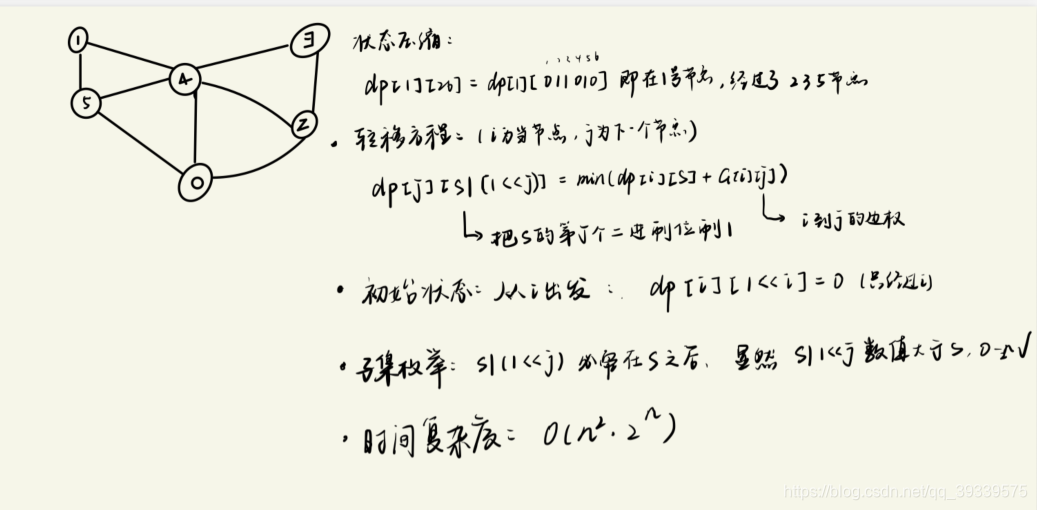 1
3
4
5
2
0
状态压缩：
123456
dp[1][26] = dp[1][011010] 即在1号节点，经过了 235节点
• 转移方程：(i为当节点，j为下一个节点)
dp[j][s|(1<<j)] = min(dp[i][s] + G[i][j])
把S的第j个二进制位制1
i到j的边权
• 初始状态：从i出发： dp[i][1<<i] = 0 (只经过i)
• 子集枚举：s|(1<<j) 必须在s之后，显然 s|1<<j 数值大于s，
• 时间复杂度：O(n²·2ⁿ)
https://blog.csdn.net/qq_39339575